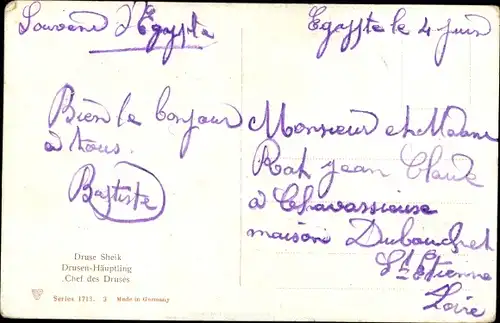 Souvenir d'Egypte
Egypte le 4 juin
Bien le bonjour
à tous.
Baptiste
Monsieur et Madame
Rat jean Claude
à Chavassieuse
maison Dubouchet
St Etienne
Loire
Druse Sheik
Drusen-Häuptling
Chef des Druses
Series 1711. 3 Made in Germany